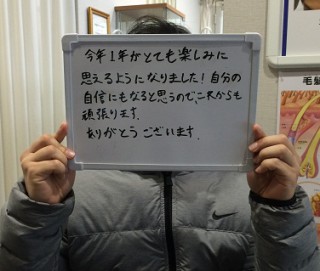 今年1年がとても楽しみに
思えるようになりました!自分の
自信にもなると思うので、これからも
頑張ります。
ありがとうございます。
毛髪